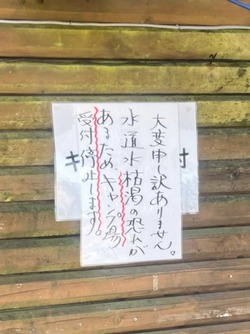 大変申し訳ありません。
水道水枯渇の恐れが
あるため、キャンプ場
受付停止します。
キ
付